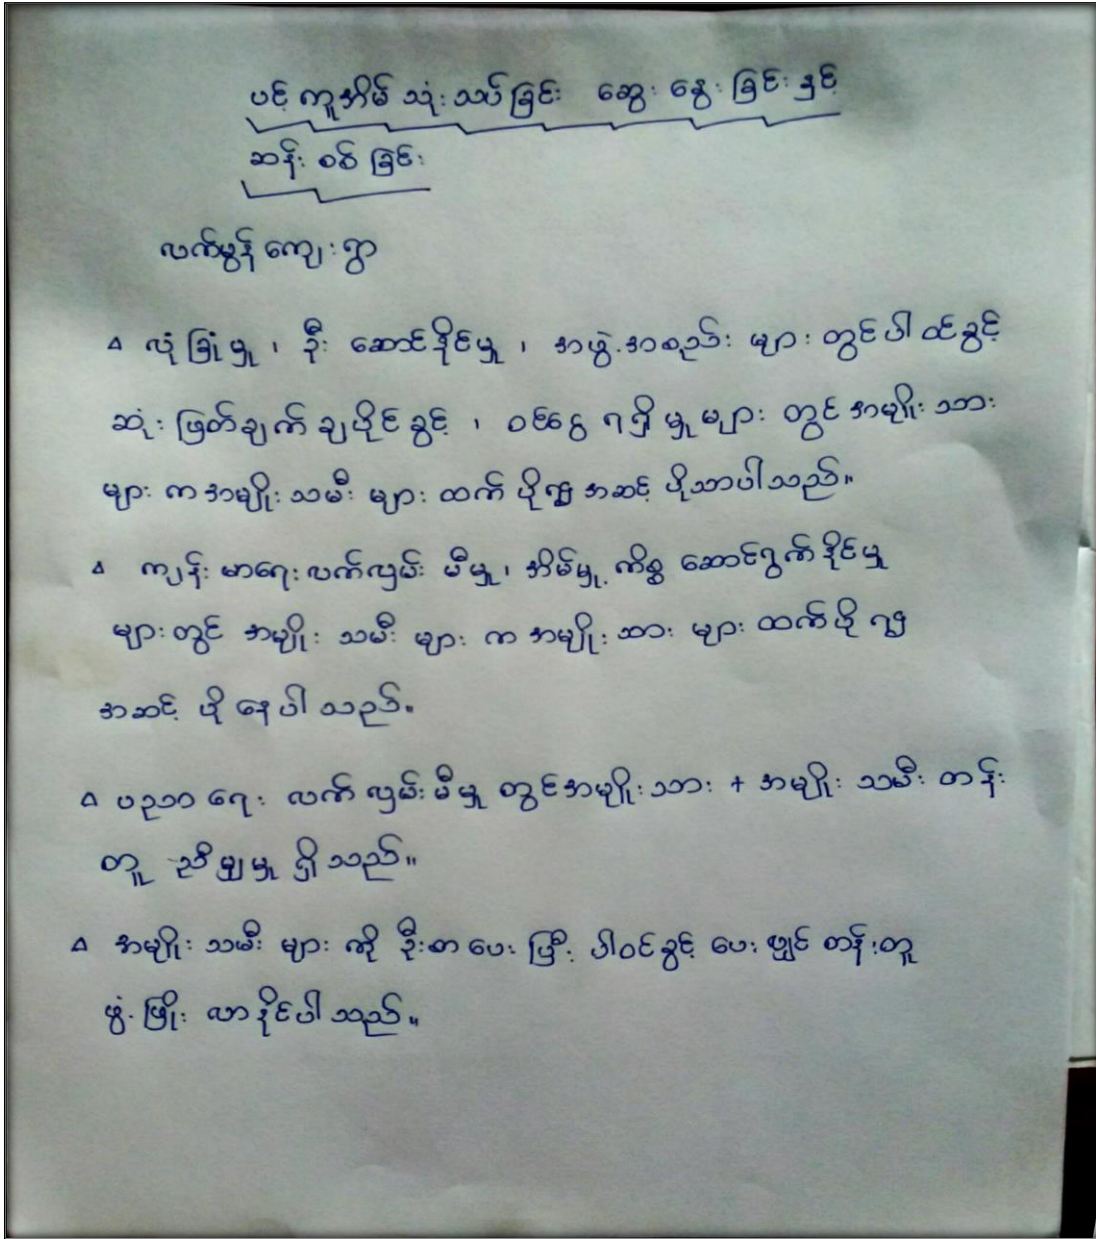 ပင့်ကူအိမ် သုံးသပ်ခြင်း ဆွေးနွေးခြင်းနှင့်
ဆန်းစစ်ခြင်း
လက်မွန်ကျေးရွာ
∆ လုံခြုံမှု၊ ဦးဆောင်နိုင်မှု၊ အဖွဲ့အစည်းများတွင်ပါဝင်ခွင့်
ဆုံးဖြတ်ချက်ချပိုင်ခွင့်၊ ဝင်ငွေရရှိမှုများတွင် အမျိုးသား
များက အမျိုးသမီးများထက် ပို၍ အဆင့်ပိုသာပါသည်။
∆ ကျန်းမာရေးလက်လှမ်းမီမှု၊ အိမ်မှုကိစ္စ ဆောင်ရွက်နိုင်မှု
များတွင် အမျိုးသမီးများက အမျိုးသားများထက်ပို၍
အဆင့်ပိုနေပါသည်။
∆ ပညာရေးလက်လှမ်းမီမှုတွင် အမျိုးသား + အမျိုးသမီး တန်း
တူ ညီမျှမှုရှိသည်။
∆ အမျိုးသမီးများကို ဦးစားပေးပြီး ပါဝင်ခွင့်ပေးလျှင် တန်းတူ
ဖွံ့ဖြိုးလာနိုင်ပါသည်။